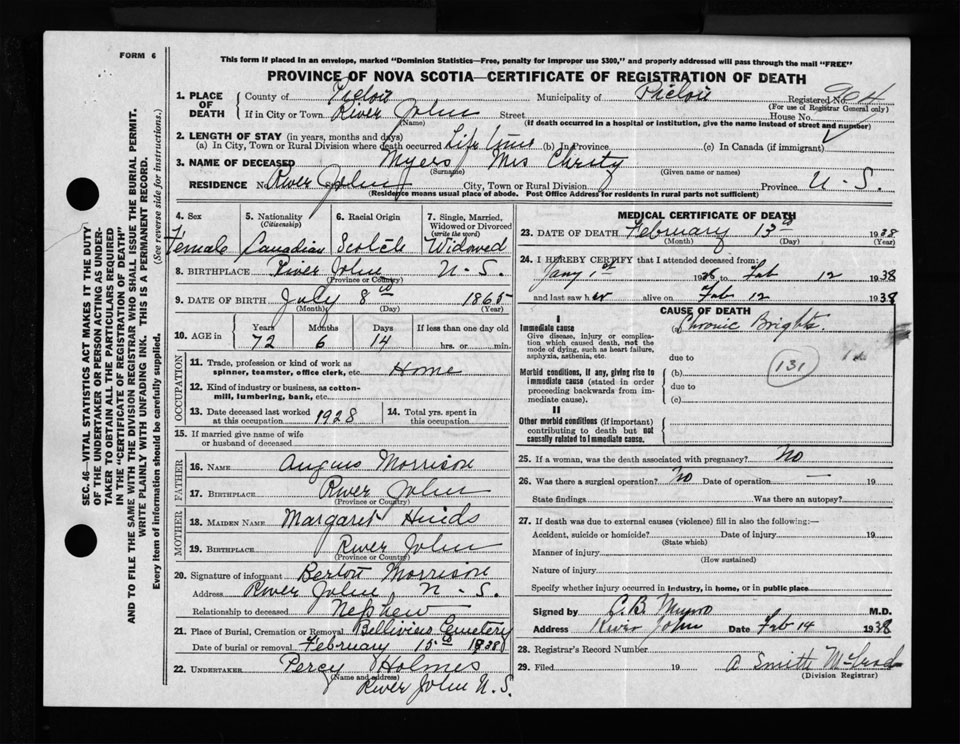 FORM 6
This form if placed in an envelope, marked "Dominion Statistics—Free, penalty for improper use $300," and properly addressed will pass through the mail "FREE"
PROVINCE OF NOVA SCOTIA—CERTIFICATE OF REGISTRATION OF DEATH
1. PLACE OF DEATH
County of Pictou Municipality of Pictou Registered No. 904
(For use of Registrar General only)
If in City or Town River John Street House No.
(Name) (If death occurred in a hospital or institution, give the name instead of street and number)
2. LENGTH OF STAY (in years, months and days)
(a) In City, Town or Rural Division where death occurred Life time (b) In Province (c) In Canada (if immigrant)
3. NAME OF DECEASED Myers Mrs Christy
(Surname) (Given name or names)
RESIDENCE No. River John Street City, Town or Rural Division Province N-S.
(Residence means usual place of abode. Post Office Address for residents in rural parts not sufficient)
4. Sex Female
5. Nationality (Citizenship) Canadian
6. Racial Origin Scotch
7. Single, Married, Widowed or Divorced (write the word) Widowed
8. BIRTHPLACE River John N-S.
(Province or Country)
9. DATE OF BIRTH July 8th 1865
(Month) (Day) (Year)
10. AGE in Years 72 Months 6 Days 14 If less than one day old hrs. or min.
OCCUPATION
11. Trade, profession or kind of work as spinner, teamster, office clerk, etc. Home
12. Kind of industry or business, as cotton-mill, lumbering, bank, etc.
13. Date deceased last worked at this occupation 1928
14. Total yrs. spent in this occupation
15. If married give name of wife or husband of deceased
FATHER
16. NAME Angus Morrison
17. BIRTHPLACE River John
(Province or Country)
MOTHER
18. MAIDEN NAME Margaret Hinds
19. BIRTHPLACE River John
(Province or Country)
20. Signature of informant Morrison
Address River John N-S.
Relationship to deceased Nephew
21. Place of Burial, Cremation or Removal Cemetery
Date of burial or removal February 15th 1938
22. UNDERTAKER Percy Holmes
(Name and address)
River John N.S.
MEDICAL CERTIFICATE OF DEATH
23. DATE OF DEATH February 13th 1938
(Month) (Day) (Year)
24. I HEREBY CERTIFY that I attended deceased from:
Jany 1st to Feb 12 1938
and last saw her alive on Feb 12 1938
CAUSE OF DEATH
I
Immediate cause
Give disease, injury or complication which caused death, not the mode of dying, such as heart failure, asphyxia, asthenia, etc.
(a) Chronic Brights
due to
131
Morbid conditions, if any, giving rise to immediate cause (stated in order proceeding backwards from immediate cause).
(b)
due to
(c)
II
Other morbid conditions (if important) contributing to death but not causally related to immediate cause.
25. If a woman, was the death associated with pregnancy? No
26. Was there a surgical operation? No Date of operation — 19
State findings Was there an autopsy?
27. If death was due to external causes (violence) fill in also the following:—
Accident, suicide or homicide? Date of injury 19
(State which)
Manner of injury
(How sustained)
Nature of injury
Specify whether injury occurred in industry, in home, or in public place
Signed by C.B. Munro M.D.
Address River John Date Feb 14 1938
28. Registrar's Record Number
29. Filed 19 A Smith McLeod
(Division Registrar)
SEC. 46—VITAL STATISTICS ACT MAKES IT THE DUTY
OF THE UNDERTAKER OR PERSON ACTING AS UNDER-
TAKER TO OBTAIN ALL THE PARTICULARS REQUIRED
IN THE "CERTIFICATE OF REGISTRATION OF DEATH"
AND TO FILE THE SAME WITH THE DIVISION REGISTRAR WHO SHALL ISSUE THE BURIAL PERMIT.
WRITE PLAINLY WITH UNFADING INK. THIS IS A PERMANENT RECORD.
Every item of information should be carefully supplied. (See reverse side for instructions.)